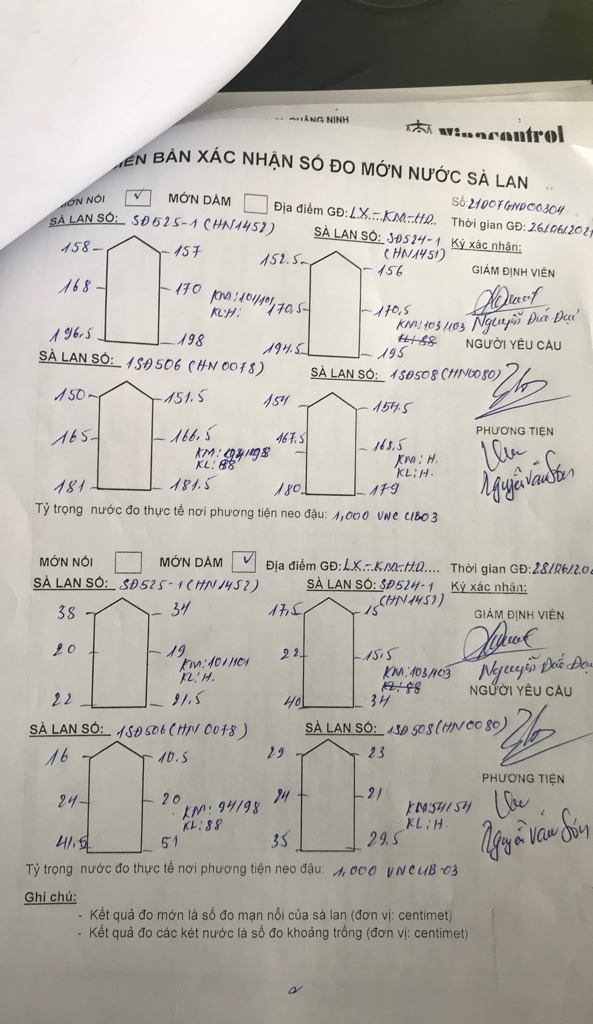 QUẢNG NINH
Vinacontrol
BẢN XÁC NHẬN SỐ ĐO MỚN NƯỚC SÀ LAN
Số: 21D07GND00304
MỚN NỔI ✓ MỚN DẦM Địa điểm GĐ: LX-KM-HD. Thời gian GĐ: 26/06/202
SÀ LAN SỐ: SĐ525-1 (HN1452) SÀ LAN SỐ: SĐ524-1 (HN1451) Ký xác nhận:
158 157 152.5 156
GIÁM ĐỊNH VIÊN
168 170 KM: 101/101 170,5 170,5
KL: H. KM: 103/103
Nguyễn Đức Đại
196.5 198 194.5 195 KL: 88
NGƯỜI YÊU CẦU
SÀ LAN SỐ: 1SĐ506 (HN0078) SÀ LAN SỐ: 1SĐ508 (HN0080)
150 151.5 154 154.5
PHƯƠNG TIỆN
165 166.5 167.5 168.5
KL: 88 KM: H.
KL: H.
181 181.5 180 179
Nguyễn Văn Sơn
Tỷ trọng nước đo thực tế nơi phương tiện neo đậu: 1,000 VNC UB03
MỚN NỔI MỚN DẦM ✓ Địa điểm GĐ: LX-KM-HD.... Thời gian GĐ: 28/06/202
SÀ LAN SỐ: SĐ525-1 (HN1452) SÀ LAN SỐ: SĐ524-1 (HN1451) Ký xác nhận:
38 34 17,5 15
GIÁM ĐỊNH VIÊN
20 19 22 15.5
KM: 101/101 KM: 103/103
KL: H. KL: 88
Nguyễn Đức Đại
22 21.5 40 34
NGƯỜI YÊU CẦU
SÀ LAN SỐ: 1SĐ506 (HN0078) SÀ LAN SỐ: 1SĐ508 (HN0080)
16 10.5 29 23
PHƯƠNG TIỆN
24 20 24 21
KM: 94/98 KM: 54/54
KL: 88 KL: H.
41.5 51 35 29.5
Nguyễn Văn Sơn
Tỷ trọng nước đo thực tế nơi phương tiện neo đậu: 1,000 VNC UB-03
Ghi chú:
- Kết quả đo mớn là số đo mạn nổi của sà lan (đơn vị: centimet)
- Kết quả đo các két nước là số đo khoảng trống (đơn vị: centimet)